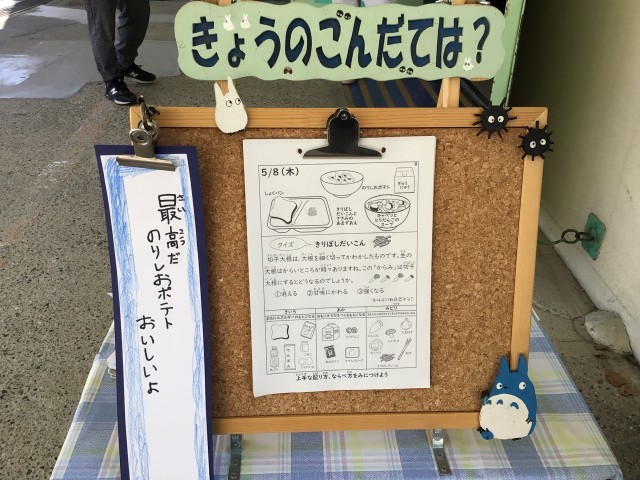 きょうのこんだては？
最高だ
さいこう
のりしおポテト
おいしいよ
5/8（木）
のりしおポテト
ぎゅうにゅう
しょくパン
きりぼしだいこんとささみのあまずあえ
キャベツととりだんごのスープ
クイズ
きりぼしだいこん
切干大根は、大根を細く切ってかわかしたものです。生の
大根はからいところが時々ありますね。この「からみ」は切干
大根にするとどうなるのでしょうか。
①消える　②甘味にかわる　③強くなる
きいろ
あか
みどり
上手な配り方、ならべ方をみにつけよう